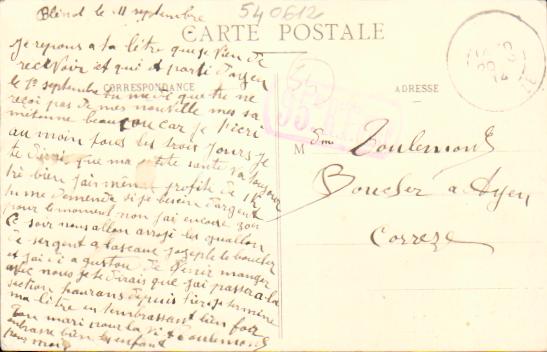 Blénod le 11 septembre
540612
CARTE POSTALE
CORRESPONDANCE
ADRESSE
Je repons a ta lètre que je vien de
recevoir et qui et parti d'ayen
le 1er septembre tu me di que tu ne
reçoi pas de mes nouvelle mes sa
métonne beaucoup car je t'ecri
au moin tous les trois jours je
te dirai que ma santé va toujour
trè bien j'ai même profité de
tu me demende si je besoin d'argent
pour le moment non j'ai encore
Ce soir nous allon arrosé les gallon
de sergent a lascaux josephe le boucher
et j'ai di a guston de venir manger
avec nous je te dirais que j'ai passer a la
section depuis hier je termine
ma lètre en tembrassant bien fort
ton mari pour la vi Toulemont
enbrasse bien les enfant
pour moi
M dme Toulemont
Boucher a Ayen
Correze